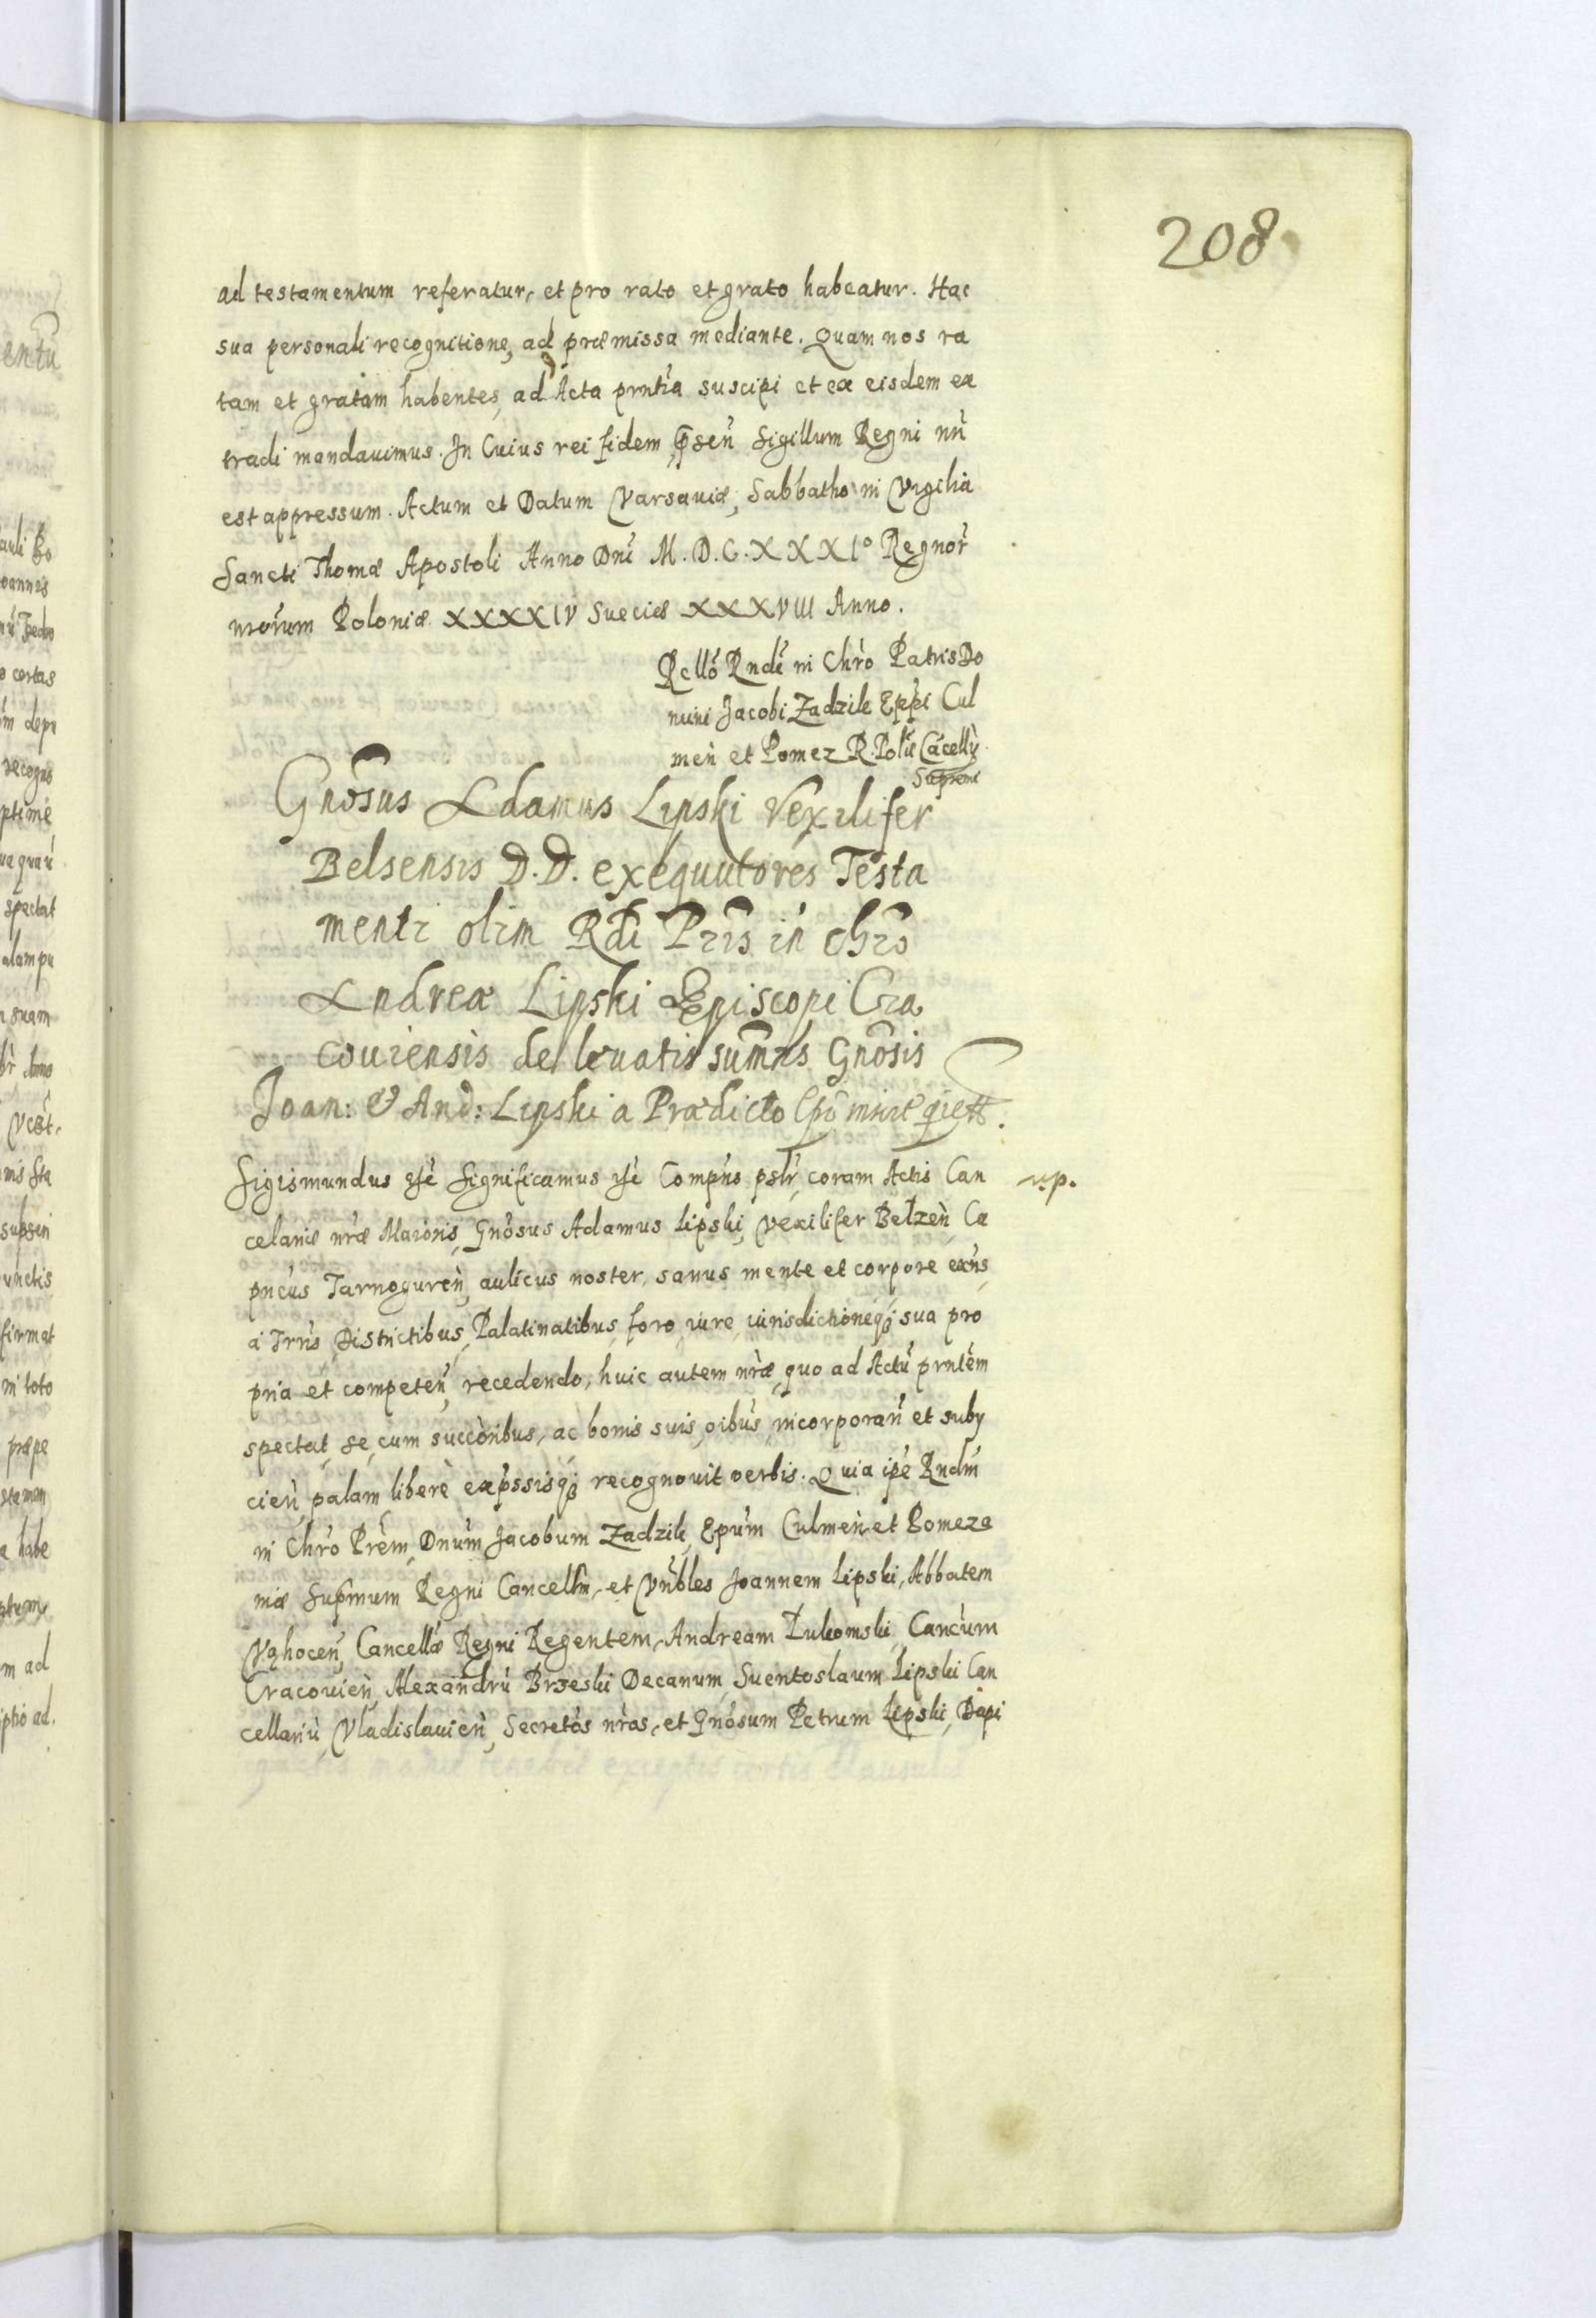 208
ad testamentum referatur, et pro rato et grato habeatur. Hac
sua personali recognitione, ad præmissa mediante. Quam nos ra
tam et gratam habentes, ad Acta prntia suscipi et ex eisdem ex
tradi mandauimus. In Cuius rei fidem, psen Sigillum Regni nn
est appressum. Actum et Datum Varsauiæ, Sabbatho in Vigilia
Sancti Thomæ Apostoli Anno Dni M.D.C.XXXIo Regnor
nrorum Poloniæ XXXXIV Sueciæ XXXVIII Anno.
Rello Rndi in Chro Patris Do
mini Jacobi Zadzik Eppi Cul
men et Pomez R. Polu Cacellÿ
Supremi
Gnosus Adamus Lipski Vexilifer
Belsensis D.D. exequutores Testa
menti olim Rdi Pris in Chro
Andreæ Lipski Episcopi Cra
couiensis de leuatis sumis Gnosis
Joan: & And: Lipski a Prædicto Epo
Sigismundus Significamus Compns pslr, coram Actis Can
celariæ nræ Maioris, Gnosus Adamus Lipski, Vexilifer Belzen, Ca
pneus Tarnoguren, aulicus noster, sanus mente et corpore exns,
a Trris Districtibus, Palatinatibus, foro, iure, iurisdictioneq; sua pro
pria et competen, recedendo, huic autem nræ, quo ad Actu prntem
spectat, se, cum succoribus, ac bonis suis, oibus, incorporan et suby
cien, palam libere expssisq; recognouit verbis. Quia ipe Rndm
in Chro Prem, Dnum Jacobum Zadzik, Epum Culmen et Pomeza
niæ Supmum Regni Cancellm, et Vnbles Joannem Lipski, Abbatem
Vąhocen, Cancellæ Regni Regentem, Andream Łukomski, Cancum
Cracouien, Alexandru Brzeski Decanum, Suentoslaum Lipski Can
cellariu, Vladislauien, Secretos nros, et Gnosum Petrum Lipski, Dapi